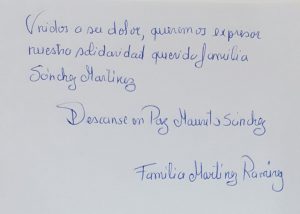 Unidos a su dolor, queremos expresar
nuestra solidaridad querida familia
Sánchez Martínez
Descanse en Paz Sánchez
Familia Martínez Ramírez